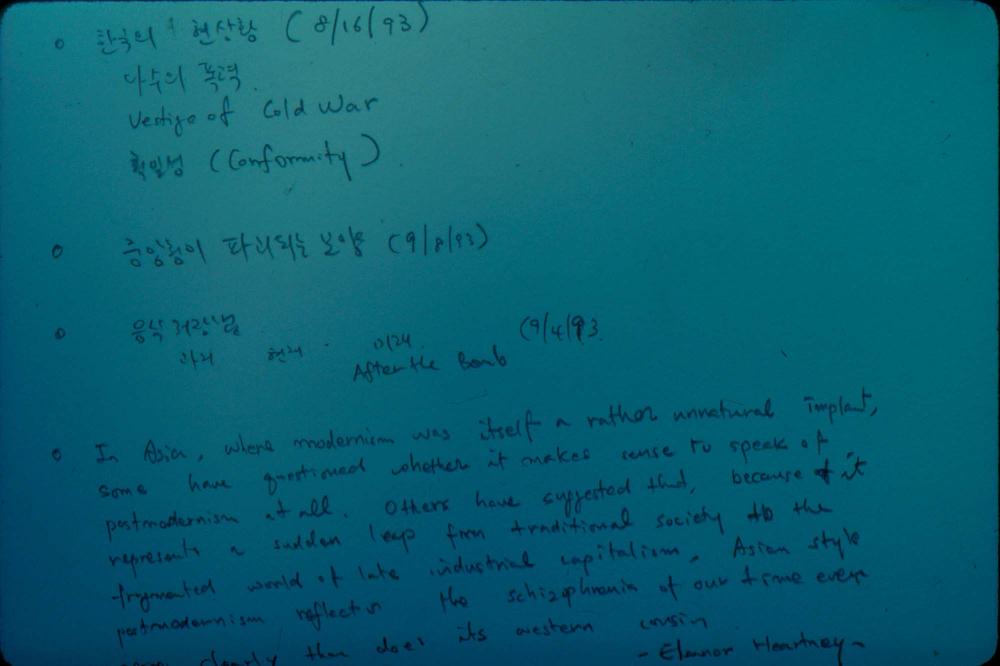 한국의 현상황 (8/16/93)
다수의 폭력
Vertigo of Cold War
획일성 (Conformity)
중앙청이 파괴되는 모양 (9/8/93)
음식 저장
과거 현재 미래 (9/4/93
After the Bomb
In Asia, where modernism was itself a rather unnatural implant,
some have questioned whether it makes sense to speak of
postmodernism at all. Others have suggested that, because it
represents a sudden leap from traditional society to the
fragmented world of late industrial capitalism, Asian style
postmodernism reflects the schizophrenia of our time even
more clearly than does its western cousin
- Eleanor Heartney -